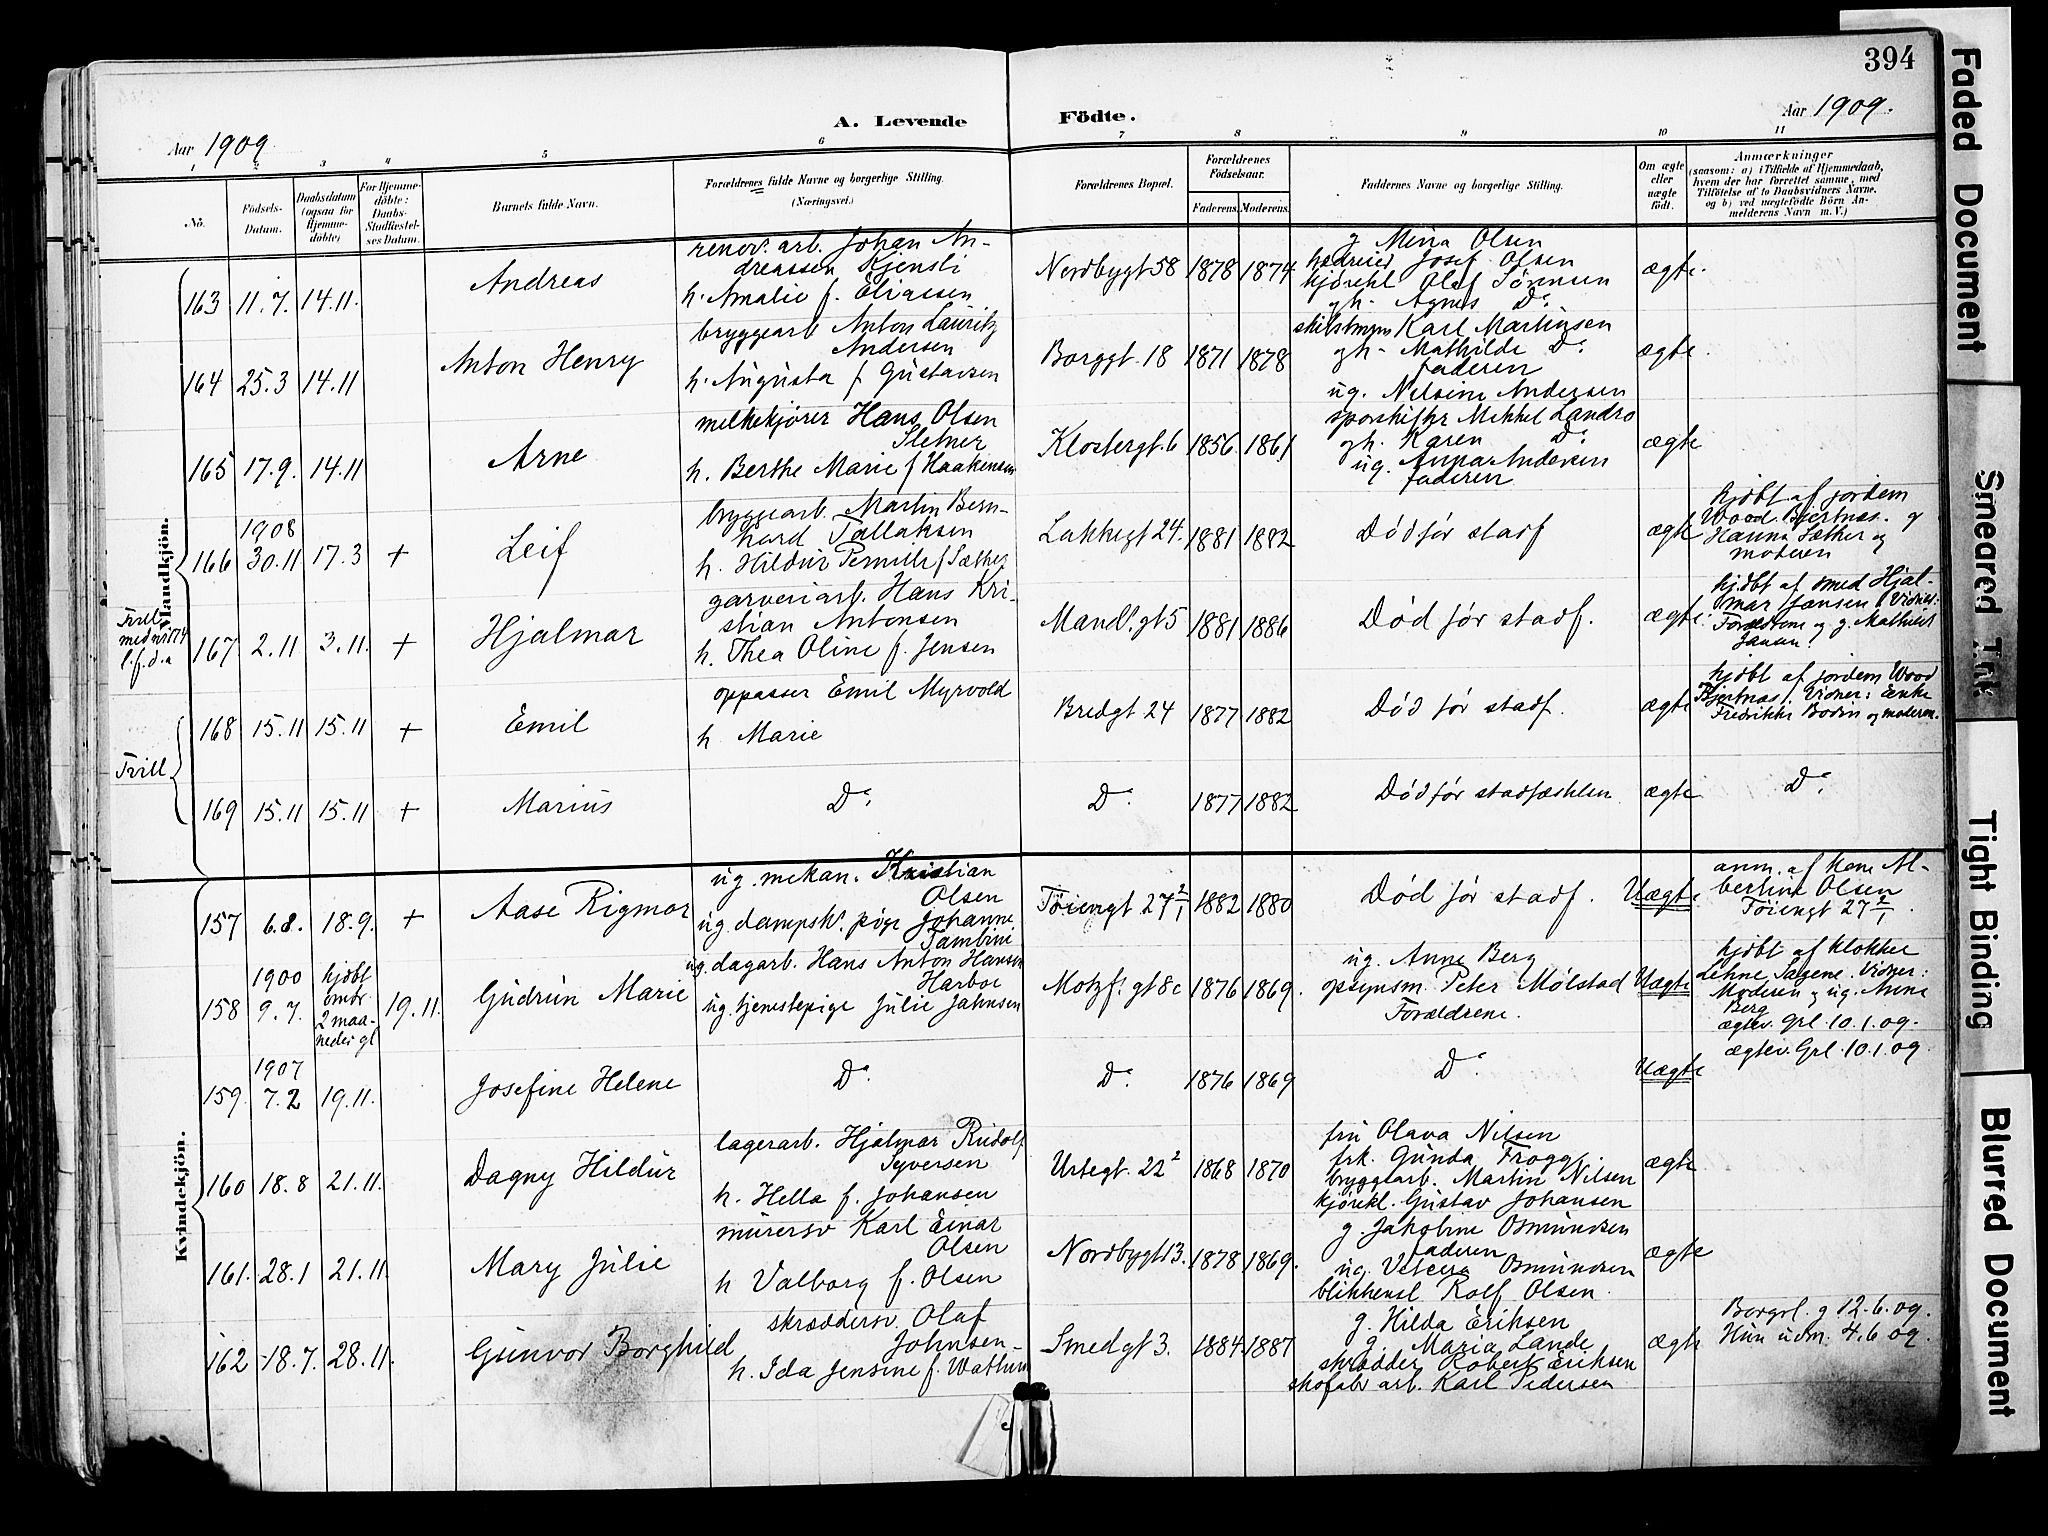 394
A. Levende Födte.
Aar 1909
Aar 1909.
1 2 3 4 5 6 7 8 9 10 11
No.
Födsels-Datum.
Daabsdatum (ogsaa for Hjemme-döbte)
For Hjemme-döbte: Daabs-Stadfæstel-ses Datum.
Barnets fulde Navn.
Forældrenes fulde Navne og borgerlige Stilling.
(Næringsvei.)
Forældrenes Bopæl.
Forældrenes Födselsaar.
Faderens. Moderens.
Faddernes Navne og borgerlige Stilling.
Om ægte eller uægte födt.
Anmærkninger
(saasom: a) i Tilfælde af Hjemmedaab, hvem der har forrettet samme, med Tilföielse af to Daabsvidners Navne. og b) ved uægtefödte Börn An-melderens Navn m. V.)
Mandkjön.
163 11.7. 14.11. Andreas
renov. arb. Johan An-
dreassen Kjensli
h. Amalie f. Eliassen
Nordbygt 58 1878 1874
g Mina Olsen
Josef Olsen
kjørekl Olaf Sørensen
gh. Agnes Do.
ægte.
164 25.3 14.11 Anton Henry
bryggearb Anton Lauritz
Andersen
h. Augusta f Gustavsen
Borggt. 18 1871 1878
Karl Martinsen
gh. Mathilde Do.
faderen
ug. Nelsine Andersen
ægte
165 17.9. 14.11 Arne
melkekjører Hans Olsen
Sletner
h. Berthe Marie f Haakensen
Klostergt. 6 1856 1861
sporskifter Mikkel Landro
gh. Karen Do.
ug. Anna Andersen
faderen
ægte
166 1908 30.11 17.3 + Leif
bryggearb. Martin Bern-
hard Tallaksen
h. Hildur Pernille f Sæther
Lakkegt 24. 1881 1882
Død før stadf
ægte
hjdbt af jordem
Wood Bjertnæs. g
Hanna Sæther og
moderen
Tvill
med nr 174
l.f.d.a
167 2.11 3.11. + Hjalmar
garveriarb. Hans Kri-
stian Antonsen
h. Thea Oline f. Jensen
Mandl. gt 5 1881 1886
Død før stadf.
ægte
hjdbt af smed Hjal-
mar Jansen. Vidner:
Forældrene og g. Mathilde
Jansen.
Tvill
168 15.11 15.11 + Emil
oppasser Emil Myrvold
h Marie
Bredgt 24 1877 1882
Død før stadf.
ægte
hjdbt af jordem Wood
Bjertnæs. Vidner: Enke
Fredrikke Bodin og moderen.
169 15.11 15.11 + Marius
Do. Do. 1877 1882
Død før stadfæstelsen
ægte
Do.
Kvindekjön.
157 6.8. 18.9. + Aase Rigmor
ug. mekan. Kristian
Olsen
ug dampsk. pige Johanne
Tambini
Tøiengt 27 2/1 1882 1880
Død før stadf.
Uægte
anm. af kone Al-
bertine Olsen
Tøiengt 27 2/1.
158 1900 9.7. hjdbt omtr 2 maa-neder gl 19.11. Gudrun Marie
ug. dagarb. Hans Anton Hansen
Harboe
ug. tjenestepige Julie Jahnsen
Motzf. gt 8c 1876 1869.
ug. Anne Berg
opsynsm. Peter Mølstad
Forældrene.
Uægte
hjdbt af klokker
Lehne Sagene. Vidner:
Moderen og ug. Anne
Berg
ægtev. Grl. 10.1.09.
159 1907 7.2 19.11. Josefine Helene
Do. Do. 1876 1869
Do.
Uægte
ægtev. Grl 10.1.09
160 18.8 21.11. Dagny Hildur
lagerarb. Hjalmar Rudolf
Syversen
h. Hella f. Johansen
Urtegt. 22² 1868 1870
fru Olava Nilsen
frk. Gunda Frogg.
bryggearb. Martin Nilsen
kjørekl. Gustav Johansen
ægte
161. 28.1 21.11. Mary Julie
murersv Karl Einar
Olsen
h Valborg f. Olsen
Nordbygt 13. 1878 1869.
g Jakobine Osmundsen
faderen
ug. Osmundsen
blikkensl Rolf Olsen.
ægte
162 18.7. 28.11. Gunvor Borghild
skræddersv Olaf
Johnsen
h. Ida Jensine f. Wathne
Smedgt 3. 1884 1887
g. Hilda Eriksen
g. Maria Lande
skrædder Robert Eriksen
skofabr arb. Karl Pedersen
ægte
Borgrl. g 12.6.09.
Hun udm. 4.6 09.
Faded Document
Smeared Ink
Tight Binding
Blurred Document